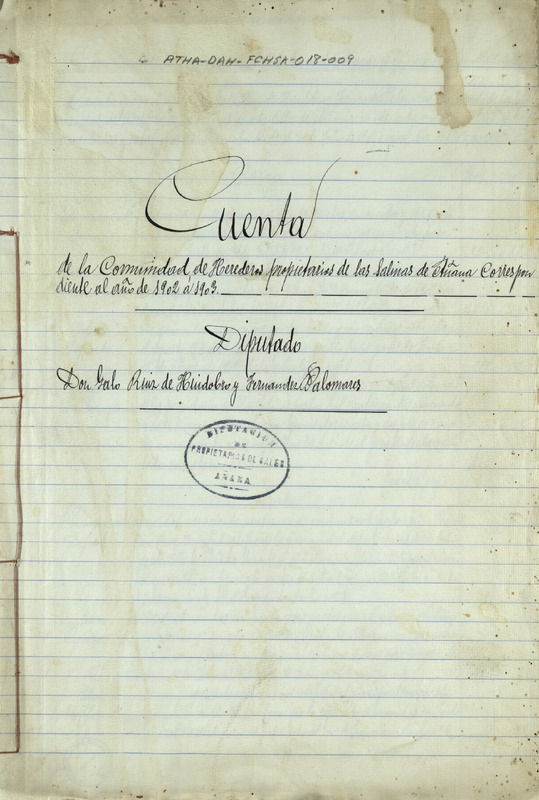 ATHA-DAH-FCHSA-018-009
Cuenta
de la Comunidad de Herederos propietarios de las Salinas de Añana Correspon
diente al año de 1902 a 1903.
Diputado
Don Galo Ruiz de Huidobro y Fernandez Palomares
DIPUTACION
DE
PROPIETARIOS DE SALES
AÑANA